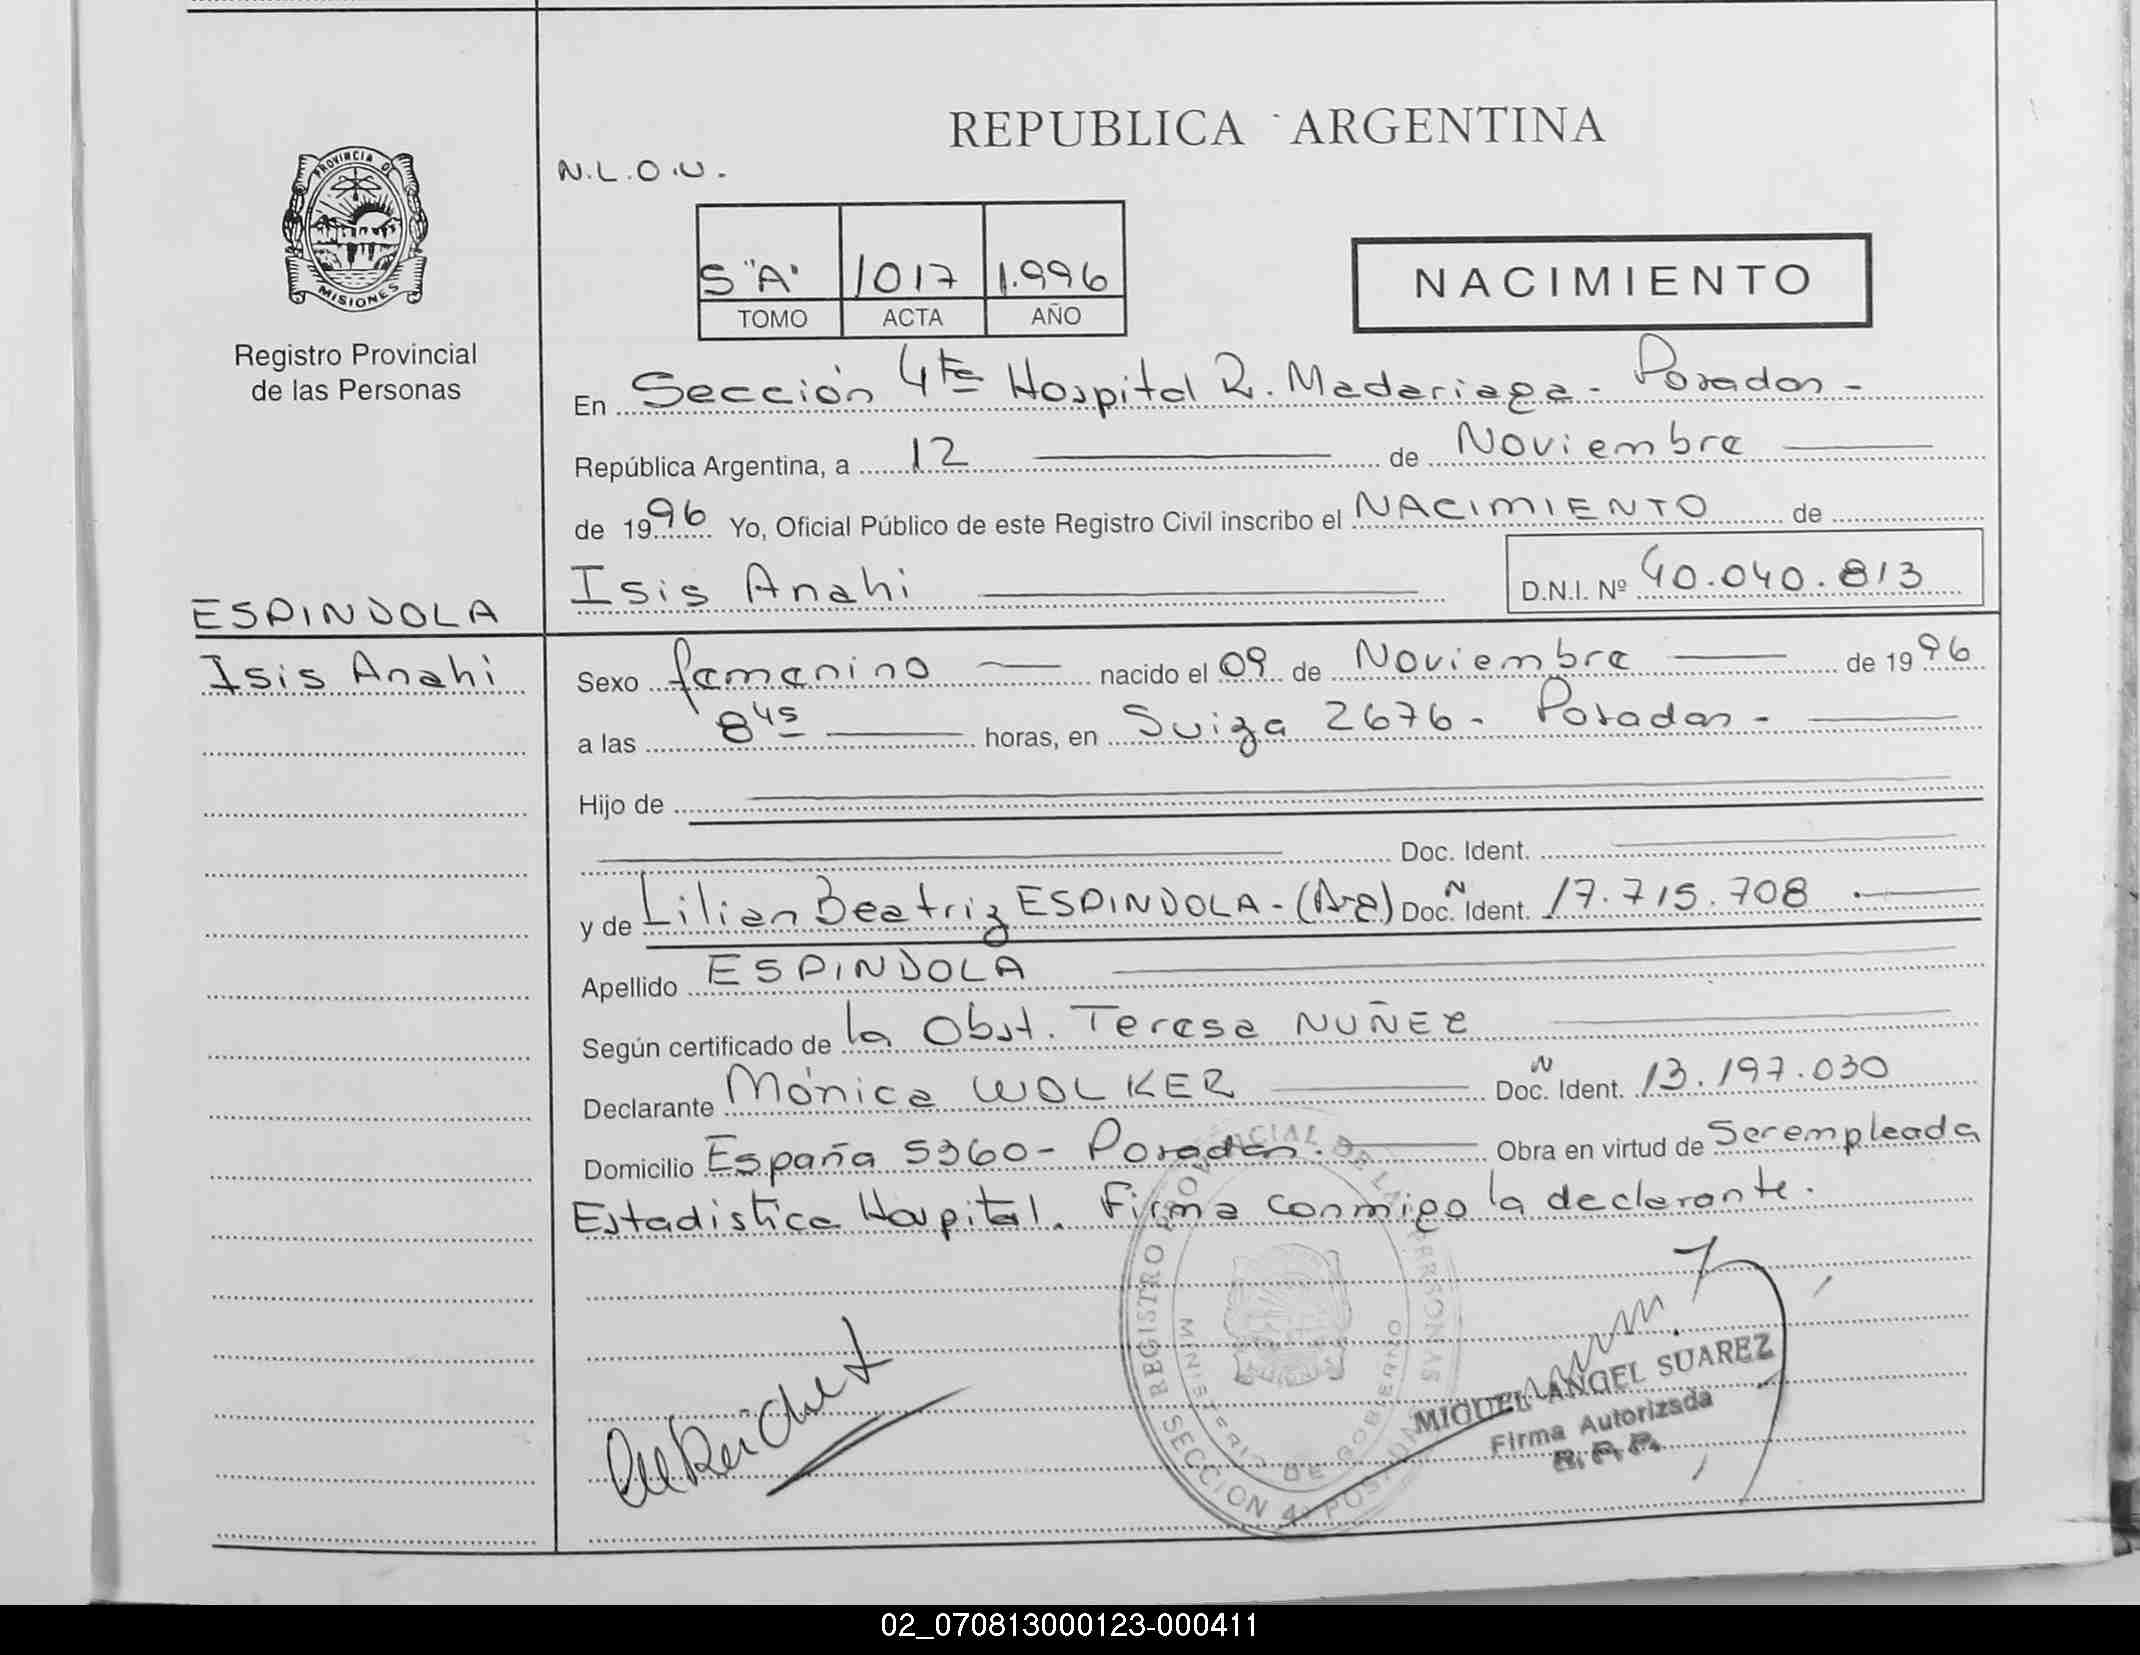 REPUBLICA ARGENTINA
N.L.O.U.
PROVINCIA DE
MISIONES
Registro Provincial
de las Personas
S "A" 1017 1.996
TOMO ACTA AÑO
NACIMIENTO
En Sección 4ta Hospital R. Madariaga - Posadas -
República Argentina, a 12 de Noviembre
de 1996 Yo, Oficial Público de este Registro Civil inscribo el NACIMIENTO de
Isis Anahi D.N.I. Nº 40.040.813
ESPINDOLA
Isis Anahi
Sexo femenino nacido el 09 de Noviembre de 1996
a las 8 45 horas, en Suiza 2676 - Posadas -
Hijo de
Doc. Ident.
y de Lilian Beatriz ESPINDOLA - (Arg) Doc. N Ident. 17.715.708
Apellido ESPINDOLA
Según certificado de la Obst. Teresa NUÑEZ
Declarante Mónica WOLKER Doc. N Ident. 13.197.030
Domicilio España 5360 - Posadas. Obra en virtud de Ser empleada
Estadistica Hospital. Firma conmigo la declarante.
REGISTRO PROVINCIAL DE LAS PERSONAS
MINISTERIO DE GOBIERNO
SECCION 4ª POSADAS
MIGUEL ANGEL SUAREZ
Firma Autorizada
R. P. P.
02_070813000123-000411